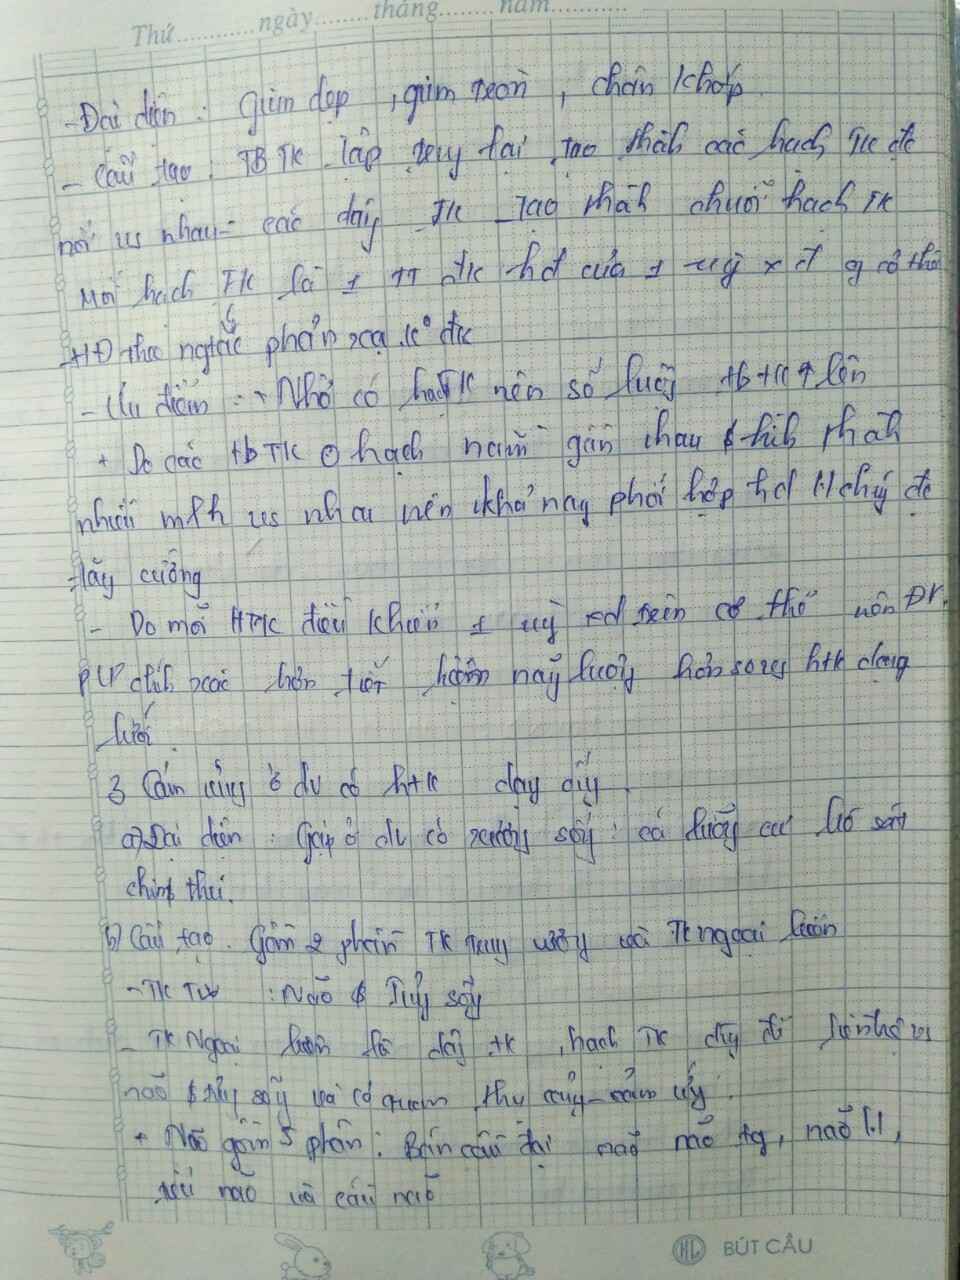 Thứ..........ngày.......tháng.......năm..........
- Đại diện : Giun dẹp , giun tròn , chân khớp.
- Cấu tạo : TB TK tập trung lại tạo thành các hạch TK đc
nối vs nhau = các dây TK tạo thành chuỗi hạch TK
Mỗi hạch TK là 1 TT đk hđ của 1 xđ cơ thể
+ HĐ theo ngtắc phản xạ k° đk
- Ưu điểm : + Nhờ có hạch TK nên số lượng tb tk ↑ lên
+ Do các tb TK ở hạch nằm gần nhau & hình thành
nhiều mlh vs nhau nên khả nag phối hợp hđ chúng đc
tăng cường
- Do mỗi HTK điều khiển 1 vùg xđ trên cơ thể nên ĐV
PƯ chính xác hơn tiết kiệm năng lượng hơn so vs htk dạng
lưới.
3 Cảm ứng ở đv có htk dạng ống.
a) Đại diện : Gặp ở đv có xương sống : cá lưỡng cư bò sát
chim thú.
b) Cấu tạo. Gồm 2 phần TK trung ương và TK ngoại biên
- TK TW : Não & Tuỷ sống
- TK Ngoại biên là dây tk , hạch TK liên hệ vs
não & tủy sống và cơ quan thụ cảm.
+ Não gồm 5 phần : Bán cầu đại não não tg, não
tiểu não và cầu não
HL BÚT CÂU